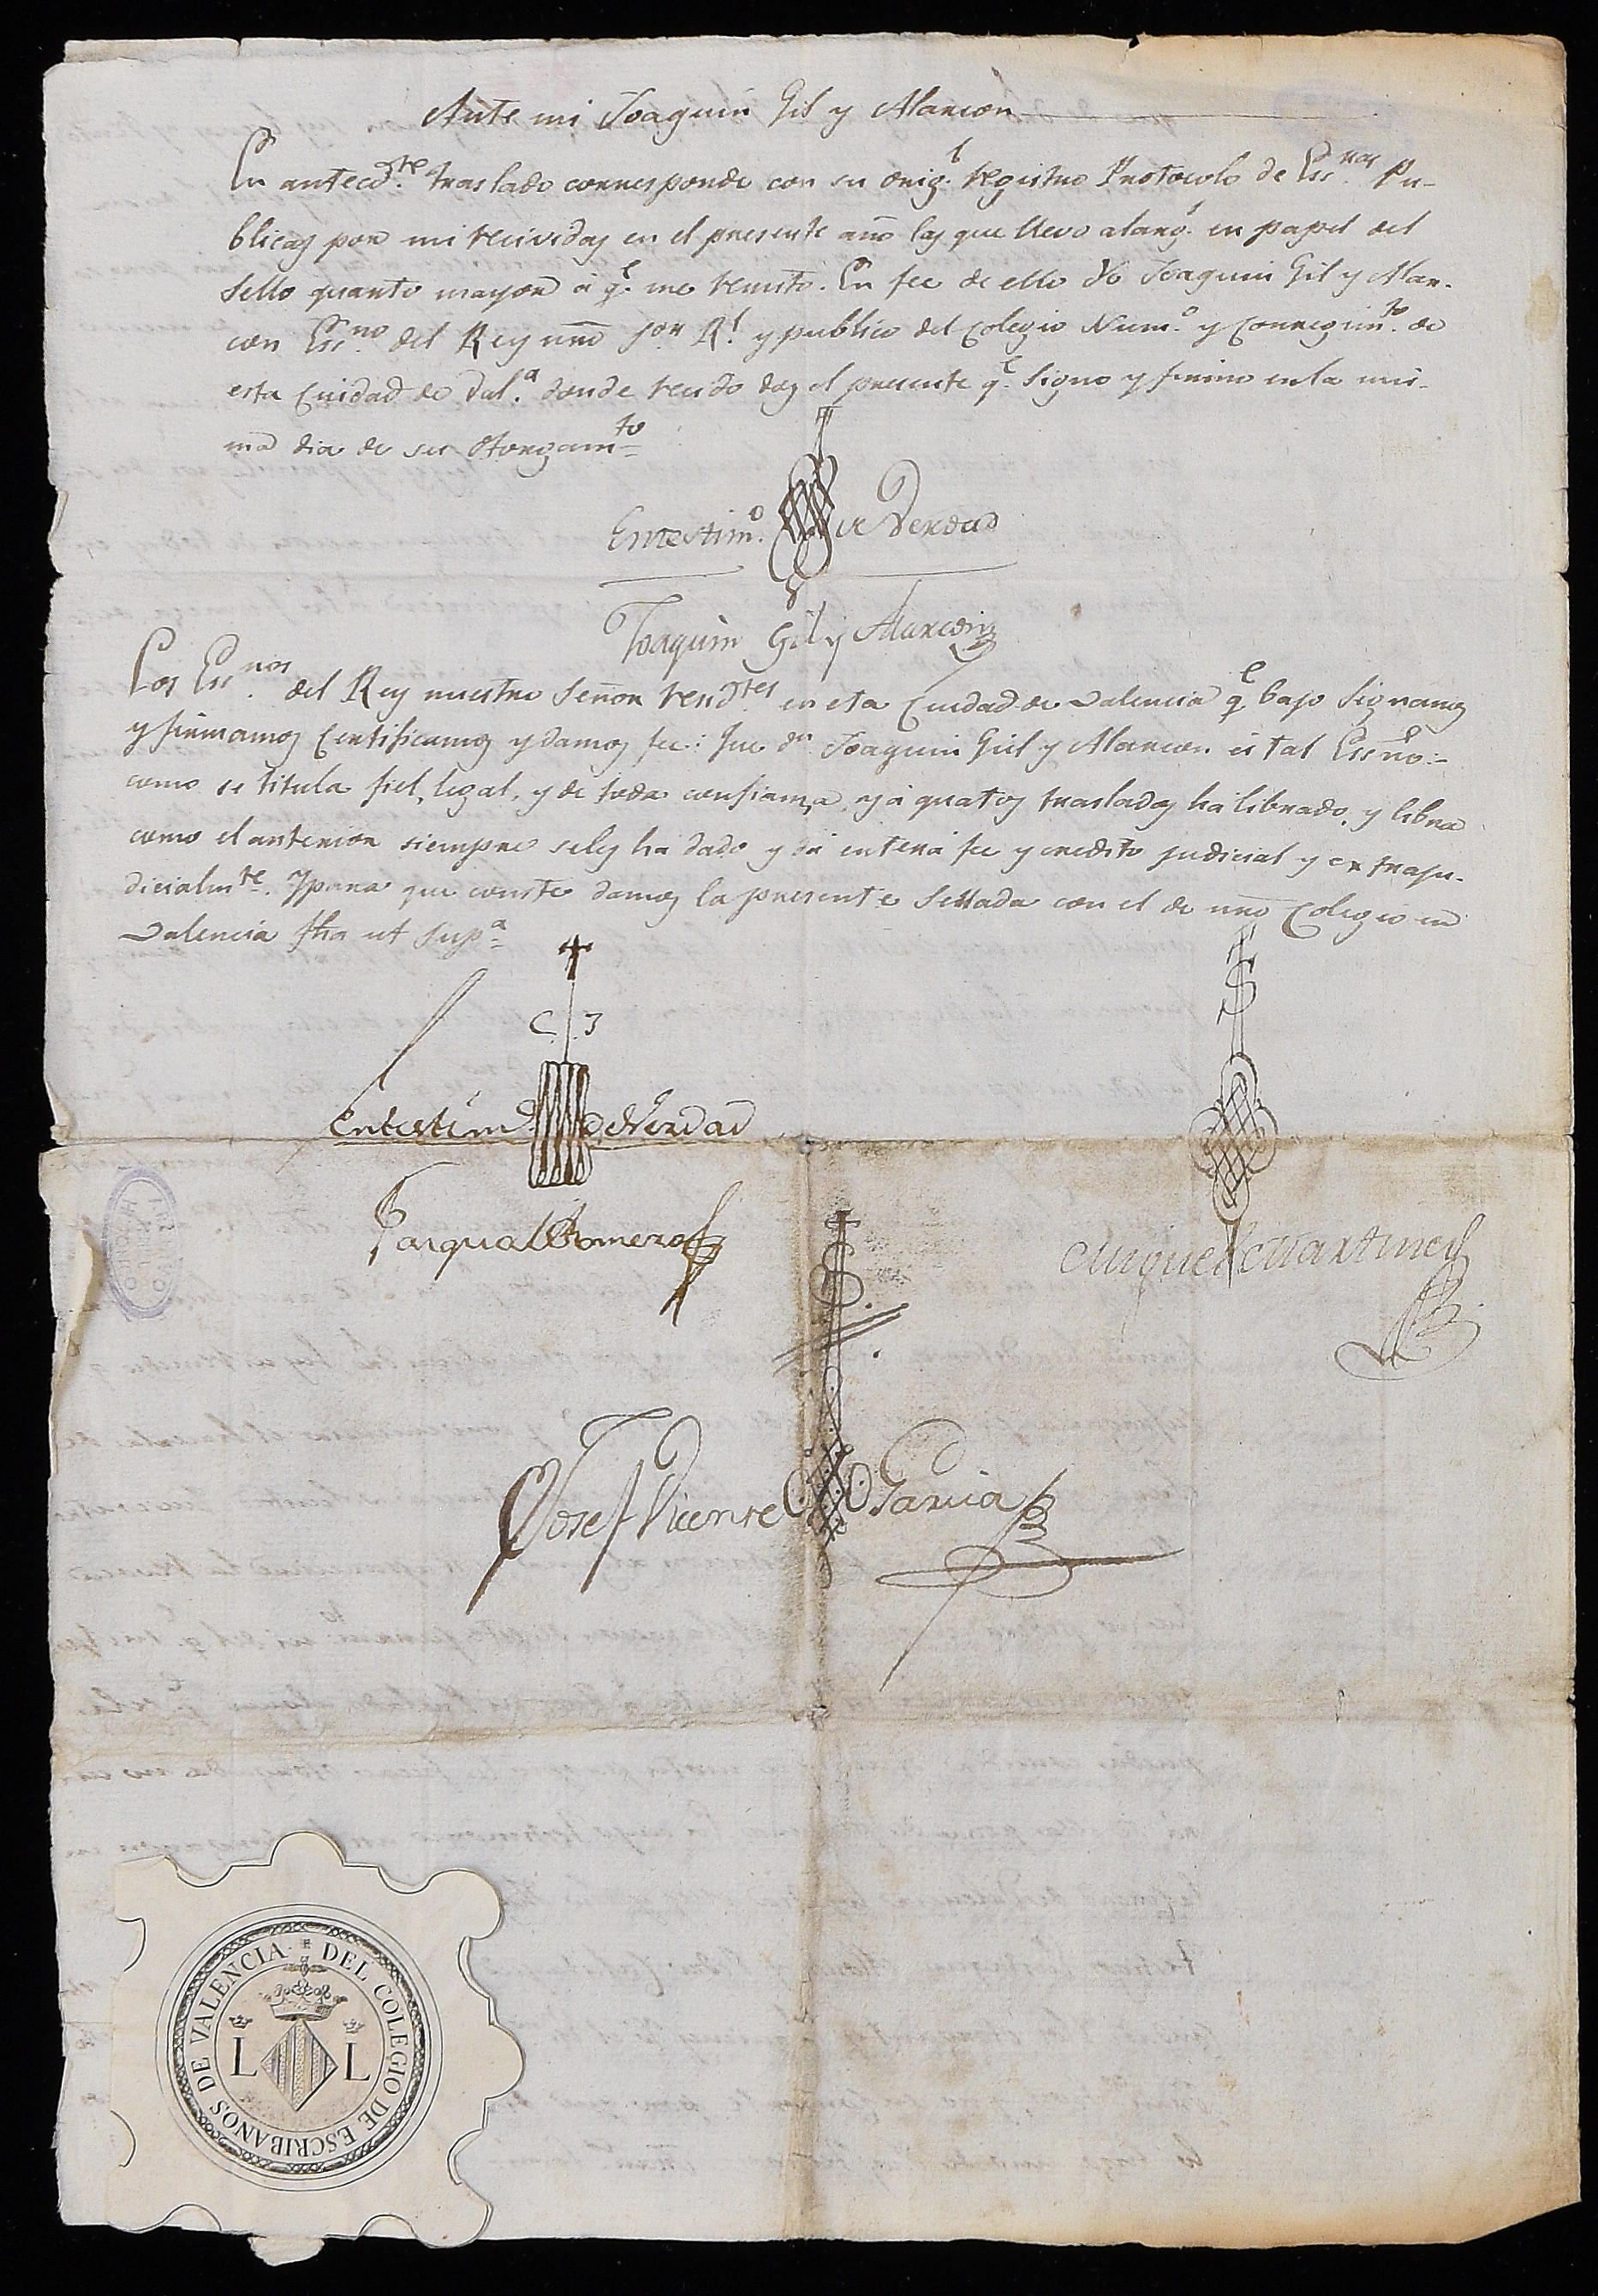 Ante mi Joaquin Gil y Alarcon
En anteced.te traslado corresponde con su orig.l registro Protocolo de Ess.nas Pu-
blicas por mi recividas en el presente año las que llevo alarg.l en papel del
Sello quarto mayor à q.e me remito. En fee de ello Yo Joaquin Gil y Alar-
con Ess.no del Rey nro S.or R.l y publico del Colegio Num.o y Corregim.to de
esta Ciudad de Val.a donde resido doy el presente q.e Signo y firmo en la mis-
ma dia de su Otorgam.to
Entestim.o de Verdad
Joaquin Gil y Alarcon
Los Ess.nos del Rey nuestro Señor resid.tes en esta Ciudad de Valencia q.e bajo Signamos
y firmamos Certificamos y damos fee: Que Dn Joaquin Gil y Alarcon es tal Essno.
como se titula fiel, legal, y de toda confianza, y à quatos traslados ha librado, y libra
como el anterior siempre seles ha dado y dà entera fee y credito judicial y extraju-
dicialm.te. Y para que conste damos la presente Sellada con el de nro Colegio en
Valencia fha ut sup.a
S
C. J
Entestim.o de Verdad
Pasqual Romero
Miguel Martinez
S.
Josef Vicente Garcia
DEL COLEGIO DE ESCRIBANOS DE VALENCIA
L L